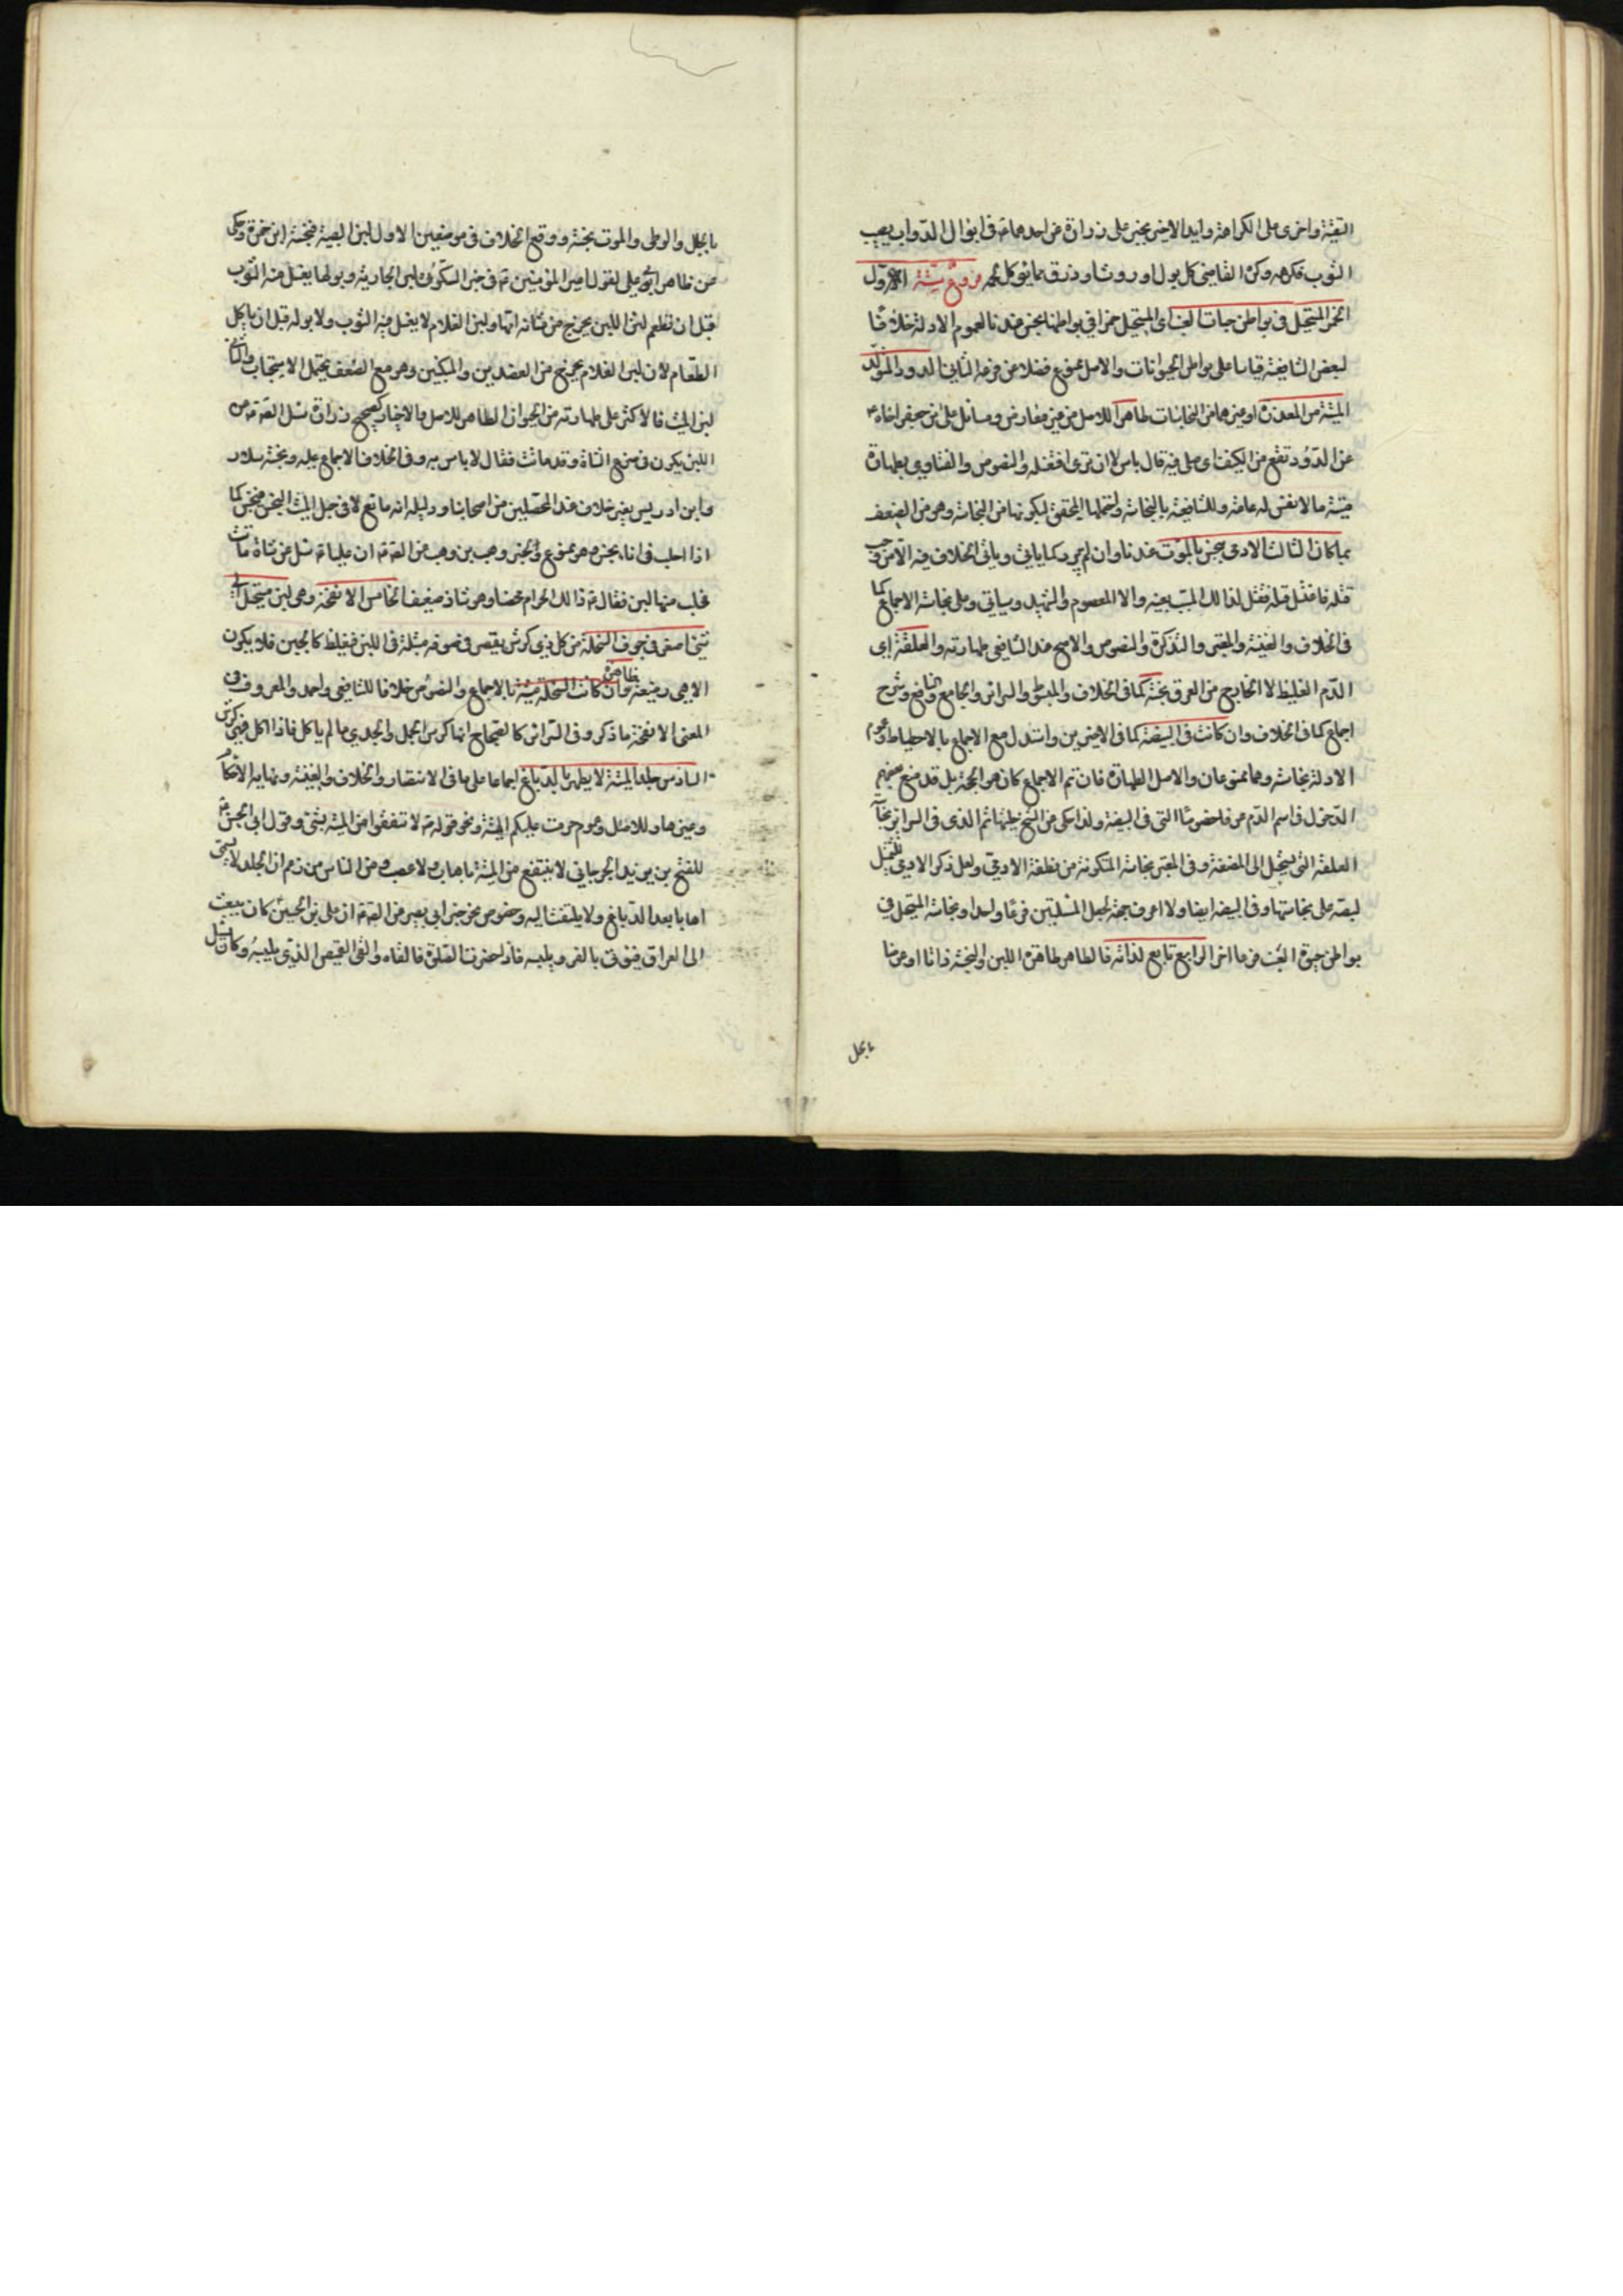 التقيّة واخرى على الكراهة وايد الاخير بخبر على زرارة عن احدهما ع في ابوال الدواب يصيب
الثوب فكرهه وكره القاضي كل بول او روث او ذرق مما يؤكل لحمه فروع ستّة الاوّل
الخمر المستحيل في بواطن حبات العنب اي المستحيل خمرا في بواطنها نجس عندنا لعموم الادلة خلافا
لبعض الشافعية قياسا على بواطن الحيوانات والاصل ممنوع فضلا عن فرعه الثاني الدود المتولّد
من الميتة او من العذرة او غيرهما من النجاسات طاهر للاصل من غير معارض وسأل على بن جعفر اخاه ع
عن الدّود تقع من الكنيف اى على فيه قال باس لا ان ترى اثرا فتغسله والنصوص والفتاوى بطهارة
ميتة ما لا نفس له عامة وللشافعية بالنجاسة واحتملها المحقق لكونها من النجاسة وهو من الضعف
بما كان الثالث الادمي ينجس بالموت عندنا وان لم يبرد كما ياتي وياتي الخلاف فيه الا من وجب
قتله فاغتسل قبله فقتل لذلك السبب بعينه والا المعصوم والشهيد وسياتي وعلى نجاسة الاجماع كما
في الخلاف والغنية والمعتبر والتذكرة والنصوص والاصح عند الشافعي طهارته والعلقة اي
الدّم الغليظ لا الخارج من العرق نجسة كما في الخلاف والمبسوط والسرائر والجامع والنافع وشرح
اجماع كما في الخلاف وان كانت في البيضة كما في الاخيرين واستدل مع الاجماع بالاحتياط وعموم
الادلة نجاسة وهما ممنوعان والاصل الطهارة فان تم الاجماع كان هو الحجة بل قد منع بعضهم
الدخول في اسم الدّم عرفا خصوصًا التي في البيضة ولذا حكى من الشيخ حليتها ثم الذى في السرائر نجاسة
العلقة التى يستحيل الى المضغة وفي المعتبر نجاسة المتكونة من نطفة الادمي ولعل ذكر الادمي للتمثيل
لنصّه على نجاستها وفي البيضة ايضا ولا اعرف جهة لجعل المسئلتين فرعًا واحدا ونجاسة المستحيل في
بواطن حبوة العنب فرعا اخر الرابع اللبن تابع لذاته فالطاهر طاهرة اللبن والنجسة ذاتا او عرضا
بالجلل
بالجلل والوطى والموت نجسة ووقع الخلاف في موضعين الاول لبن الصبية فنجسه ابن حمزة وحكى
عن ظاهر ابي على لقول امير المؤمنين ع في خبر السكوني لبن الجارية وبولها يغسل منه الثوب
قبل ان تطعم لان اللبن يخرج من مثانة امّها ولبن الغلام لا يغسل منه الثوب ولا بوله قبل ان ياكل
الطعام لان لبن الغلام يخرج من العضدين والمنكبين وهو مع الضعف يحتمل الاستحباب والثاني
لبن الميت فالاكثر على طهارته من الحيوان الطاهر للاصل والاخبار كصحيح زرارة سئل الصّ ع عن
اللبن يكون في ضرع الشاة وقد ماتت فقال لا باس به وفي الخلاف الاجماع عليه ونجسه سلار
وابن ادريس بغير خلاف عند المحصلين من اصحابنا ودليله انه مائع لاقى جلد الميت النجس فينجس كما
اذا احلب في اناء نجس وهو ممنوع والخبر وهب بن وهب عن الصّ ع ان عليا ع سئل عن شاة ماتت
فحلب منها لبن فقال ع ذالك الحرام محضا وهو شاذ ضعيف الخامس الانفحة وهي لبن مستحيل
شيئ اصفر في جوف السخلة من كل ذي كرش يعصر في صوفه مبتلة في اللبن فيغلظ كالجبن فلا يكون
الا هي رضيعة طاهرة وان كانت السخلة ميتة بالاجماع والنصوص خلافا للشافعي واحمد والمعروف في
المعنى الانفحة ما ذكر وفي السرائر كالصحاح انها كرش الحمل والجدي ما لم ياكل فاذا اكل فهي كرش
السادس جلد الميتة لا يطهر بالدباغ اجماعا على ما في الانتصار والخلاف والغنية ونهاية الاحكام
وغيرها وللاصل وعموم حرمت عليكم الميتة ونحو قوله ع لا تنتفعوا من الميتة بشئ وقول ابي الحسن ع
للفتح بن يزيد الجرجاني لا ينتفع من الميتة باهاب ولا عصب ومن الناس من زعم ان الجلد لا يسمى
اهابا بعد الدباغ ولا يلتفت اليه وخصوص نحو خبر ابي بصير عن الصّ ع ان على بن الحسين ع كان يبعث
الى العراق فيؤتى بالفرو ويلبسه فاذا حضرت الصلوة فالقاه والقى القميص الذي يليه وكان يسئل